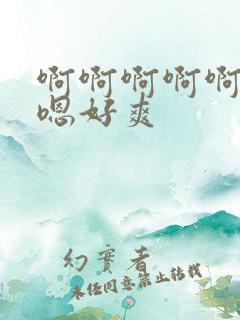 啊啊啊啊啊
嗯好爽
幻实者
未经同意禁止转载